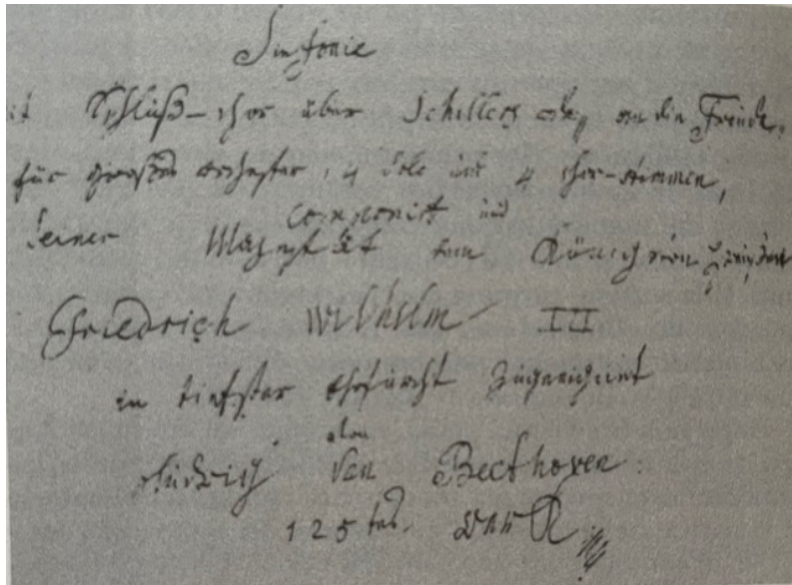 Sinfonie
mit Schluß-chor über Schillers ode, an die Freude,
für großes orchester, 4 Solo und 4 chor-stimmen,
componirt und
Seiner Majestät dem König von Preußen
Friedrich Wilhelm III
in tiefster Ehrfurcht zugeeignet
von
Ludwig van Beethoven
125tes Werk